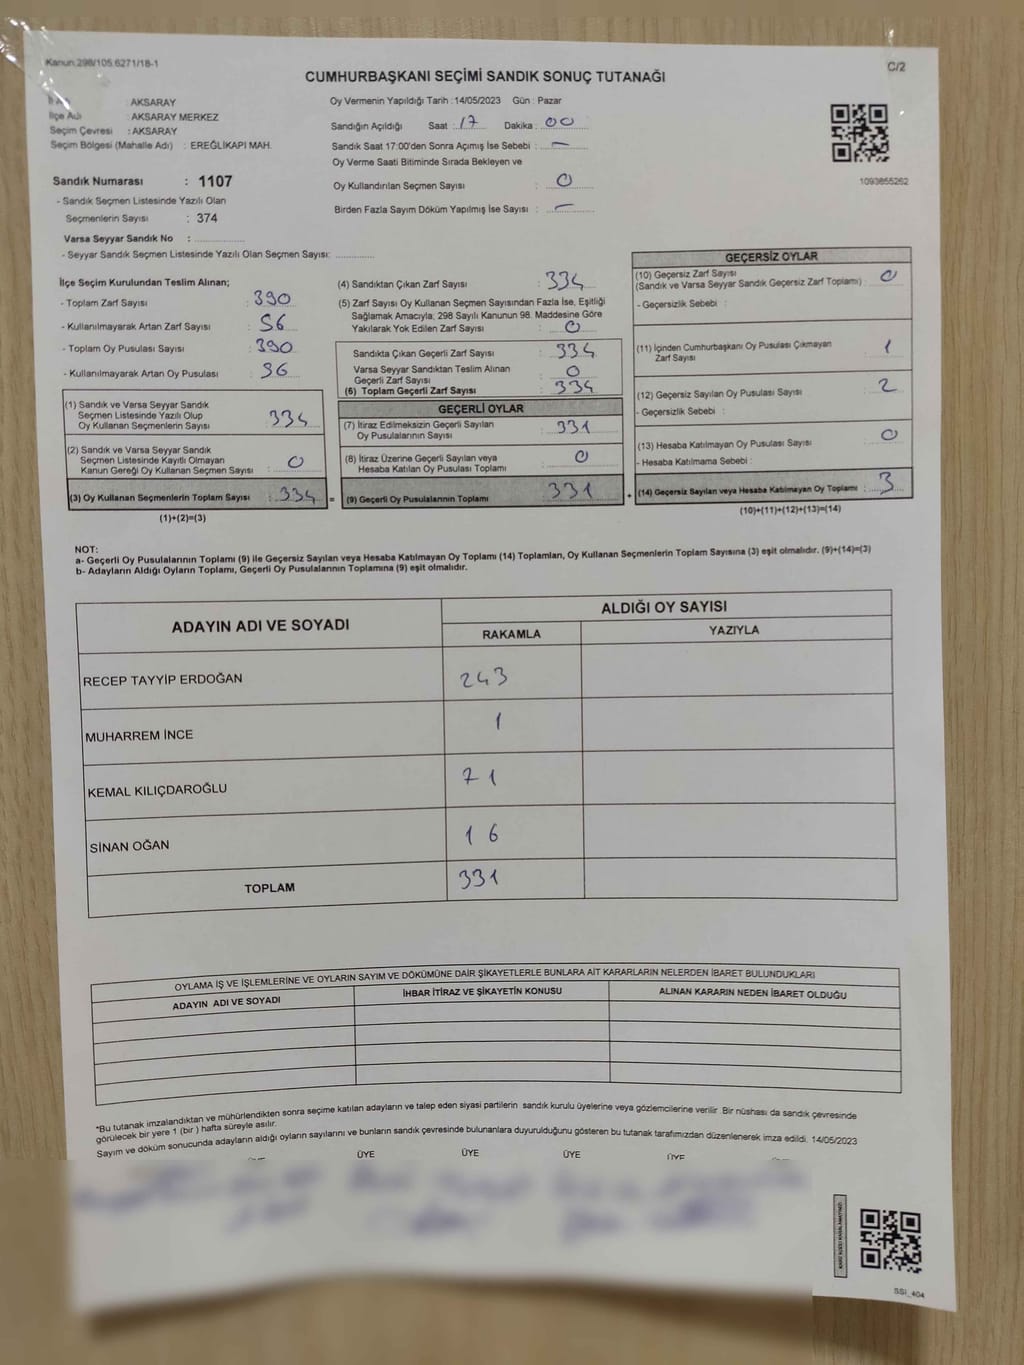 Kanun.298/105.6271/18-1
C/2
CUMHURBAŞKANI SEÇİMİ SANDIK SONUÇ TUTANAĞI
: AKSARAY
İlçe Adı : AKSARAY MERKEZ
Seçim Çevresi : AKSARAY
Seçim Bölgesi (Mahalle Adı) : EREĞLİKAPI MAH.
Oy Vermenin Yapıldığı Tarih : 14/05/2023 Gün : Pazar
Sandığın Açıldığı Saat : 17 Dakika : 00
Sandık Saat 17:00'den Sonra Açımış İse Sebebi : —
Oy Verme Saati Bitiminde Sırada Bekleyen ve
Oy Kullandırılan Seçmen Sayısı : 0
Birden Fazla Sayım Döküm Yapılmış İse Sayısı : —
1093855262
Sandık Numarası : 1107
- Sandık Seçmen Listesinde Yazılı Olan
Seçmenlerin Sayısı : 374
Varsa Seyyar Sandık No :
- Seyyar Sandık Seçmen Listesinde Yazılı Olan Seçmen Sayısı:
İlçe Seçim Kurulundan Teslim Alınan;
- Toplam Zarf Sayısı : 390
- Kullanılmayarak Artan Zarf Sayısı : 56
- Toplam Oy Pusulası Sayısı : 390
- Kullanılmayarak Artan Oy Pusulası : 56
(1) Sandık ve Varsa Seyyar Sandık
Seçmen Listesinde Yazılı Olup
Oy Kullanan Seçmenlerin Sayısı : 334
(2) Sandık ve Varsa Seyyar Sandık
Seçmen Listesinde Kayıtlı Olmayan
Kanun Gereği Oy Kullanan Seçmen Sayısı : 0
(3) Oy Kullanan Seçmenlerin Toplam Sayısı : 334 =
(1)+(2)=(3)
(4) Sandıktan Çıkan Zarf Sayısı : 334
(5) Zarf Sayısı Oy Kullanan Seçmen Sayısından Fazla İse, Eşitliği
Sağlamak Amacıyla, 298 Sayılı Kanunun 98. Maddesine Göre
Yakılarak Yok Edilen Zarf Sayısı : 0
Sandıkta Çıkan Geçerli Zarf Sayısı : 334
Varsa Seyyar Sandıktan Teslim Alınan
Geçerli Zarf Sayısı : 0
(6) Toplam Geçerli Zarf Sayısı : 334
GEÇERLİ OYLAR
(7) İtiraz Edilmeksizin Geçerli Sayılan
Oy Pusulalarının Sayısı : 331
(8) İtiraz Üzerine Geçerli Sayılan veya
Hesaba Katılan Oy Pusulası Toplamı : 0
(9) Geçerli Oy Pusulalarının Toplamı : 331 +
GEÇERSİZ OYLAR
(10) Geçersiz Zarf Sayısı
(Sandık ve Varsa Seyyar Sandık Geçersiz Zarf Toplamı) : 0
- Geçersizlik Sebebi :
(11) İçinden Cumhurbaşkanı Oy Pusulası Çıkmayan
Zarf Sayısı : 1
(12) Geçersiz Sayılan Oy Pusulası Sayısı : 2
- Geçersizlik Sebebi :
(13) Hesaba Katılmayan Oy Pusulası Sayısı : 0
- Hesaba Katılmama Sebebi :
(14) Geçersiz Sayılan veya Hesaba Katılmayan Oy Toplamı : 3
(10)+(11)+(12)+(13)=(14)
NOT:
a- Geçerli Oy Pusulalarının Toplamı (9) ile Geçersiz Sayılan veya Hesaba Katılmayan Oy Toplamı (14) Toplamları, Oy Kullanan Seçmenlerin Toplam Sayısına (3) eşit olmalıdır. (9)+(14)=(3)
b- Adayların Aldığı Oyların Toplamı, Geçerli Oy Pusulalarının Toplamına (9) eşit olmalıdır.
ADAYIN ADI VE SOYADI ALDIĞI OY SAYISI
RAKAMLA YAZIYLA
RECEP TAYYİP ERDOĞAN 243
MUHARREM İNCE 1
KEMAL KILIÇDAROĞLU 71
SİNAN OĞAN 16
TOPLAM 331
OYLAMA İŞ VE İŞLEMLERİNE VE OYLARIN SAYIM VE DÖKÜMÜNE DAİR ŞİKAYETLERLE BUNLARA AİT KARARLARIN NELERDEN İBARET BULUNDUKLARI
ADAYIN ADI VE SOYADI İHBAR İTİRAZ VE ŞİKAYETİN KONUSU ALINAN KARARIN NEDEN İBARET OLDUĞU
*Bu tutanak imzalandıktan ve mühürlendikten sonra seçime katılan adayların ve talep eden siyasi partilerin sandık kurulu üyelerine veya gözlemcilerine verilir. Bir nüshası da sandık çevresinde
görülecek bir yere 1 (bir ) hafta süreyle asılır.
Sayım ve döküm sonucunda adayların aldığı oyların sayılarını ve bunların sandık çevresinde bulunanlara duyurulduğunu gösteren bu tutanak tarafımızdan düzenlenerek imza edildi. 14/05/2023
ÜYE ÜYE ÜYE ÜYE ÜYE
SSI_404